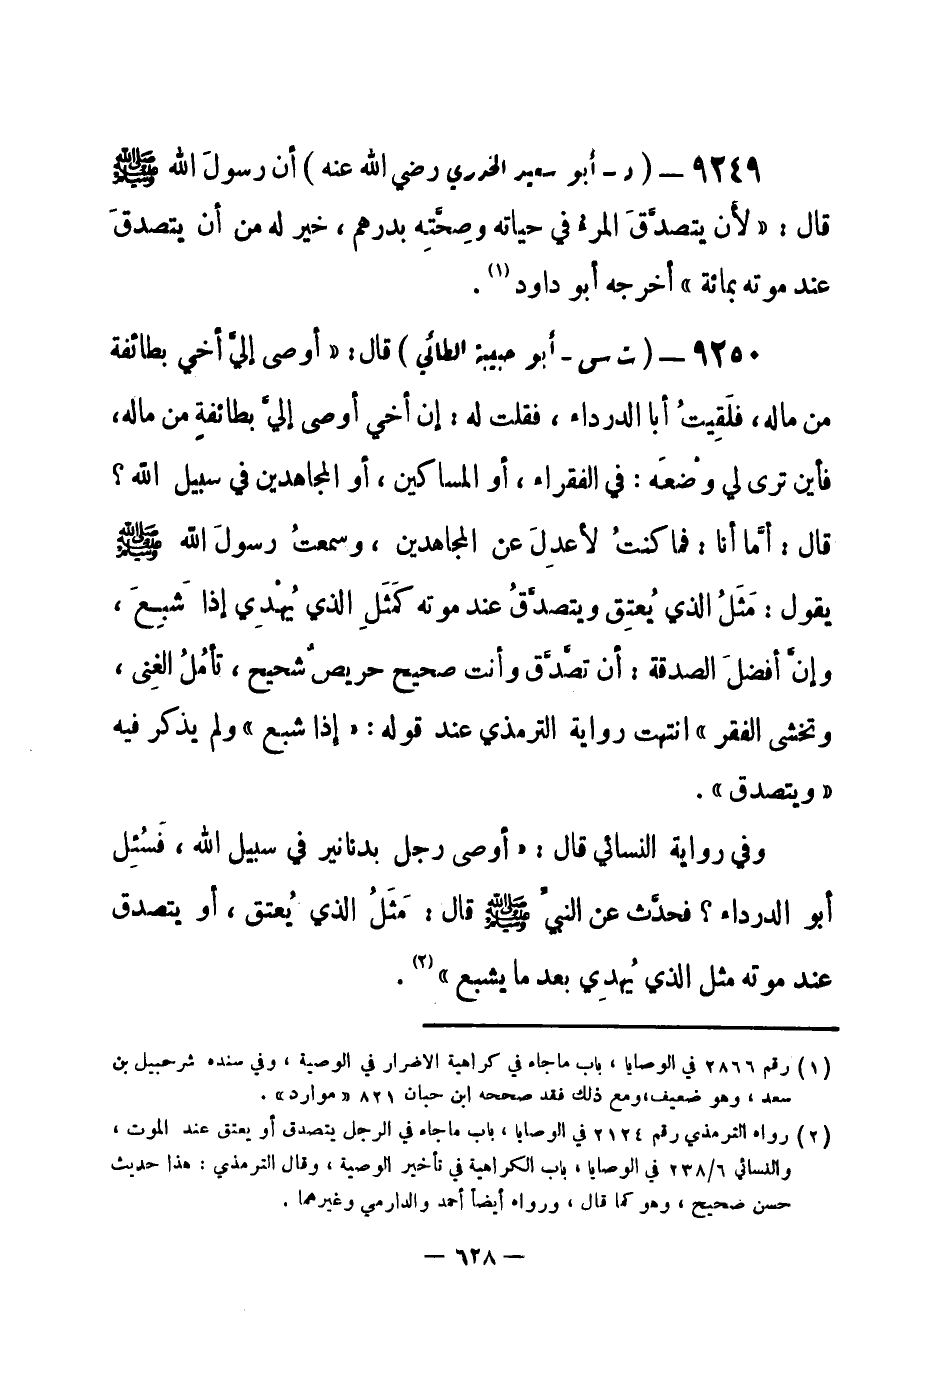 ٩٢٤٩ – ( د - أبو سعيد الخدري رضي الله عنه ) أن رسولَ الله ﷺ
قال : « لأَن يتصدَّقَ المرءُ في حياته وصِحَّتِه بدرهم ، خير له من أن يتصدقَ
عند موته بمائة » أخرجه أبو داود (١) .
٩٢٥٠ – ( ت س - أبو حبيبة الطائي ) قال : « أوصى إليَّ أخي بطائفة
من ماله ، فلَقِيتُ أبا الدرداء ، فقلت له : إن أخي أوصى إليَّ بطائفةٍ من ماله ،
فأين ترى لي وضْعَه : في الفقراء ، أو المساكين ، أو المجاهدين في سبيل الله ؟
قال : أمَّا أنا : فما كنتُ لأعدِلَ عن المجاهدين ، وسمعتُ رسولَ الله ﷺ
يقول : مَثَلُ الذي يُعتِق ويتصدَّقُ عند موته كَمَثَلِ الذي يُهْدِي إذا شَبِعَ ،
وإنَّ أفضلَ الصدقة : أن تصَّدَّق وأنت صحيح حريصٌ شحيح ، تأمُلُ الغِنى ،
وتخشى الفقر » انتهت رواية الترمذي عند قوله : « إذا شبع » ولم يذكر فيه
« ويتصدق » .
وفي رواية النسائي قال : « أوصى رجل بدنانير في سبيل الله ، فَسُئِل
أبو الدرداء ؟ فحدَّث عن النبيِّ ﷺ قال : مَثَلُ الذي يُعتق ، أو يتصدق
عند موته مثل الذي يُهدِي بعد ما يشبع » (٢) .
(١) رقم ٢٨٦٦ في الوصايا ، باب ماجاء في كراهية الاضرار في الوصية ، وفي سنده شرحبيل بن
سعد ، وهو ضعيف،ومع ذلك فقد صححه ابن حبان ٨٢١ « موارد » .
(٢) رواه الترمذي رقم ٢١٢٤ في الوصايا ، باب ماجاء في الرجل يتصدق أو يعتق عند الموت ،
والنسائي ٢٣٨/٦ في الوصايا ، باب الكراهية في تأخير الوصية ، وقال الترمذي : هذا حديث
حسن صحيح ، وهو كما قال ، ورواه أيضاً أحمد والدارمي وغيرهما .
– ٦٢٨ –